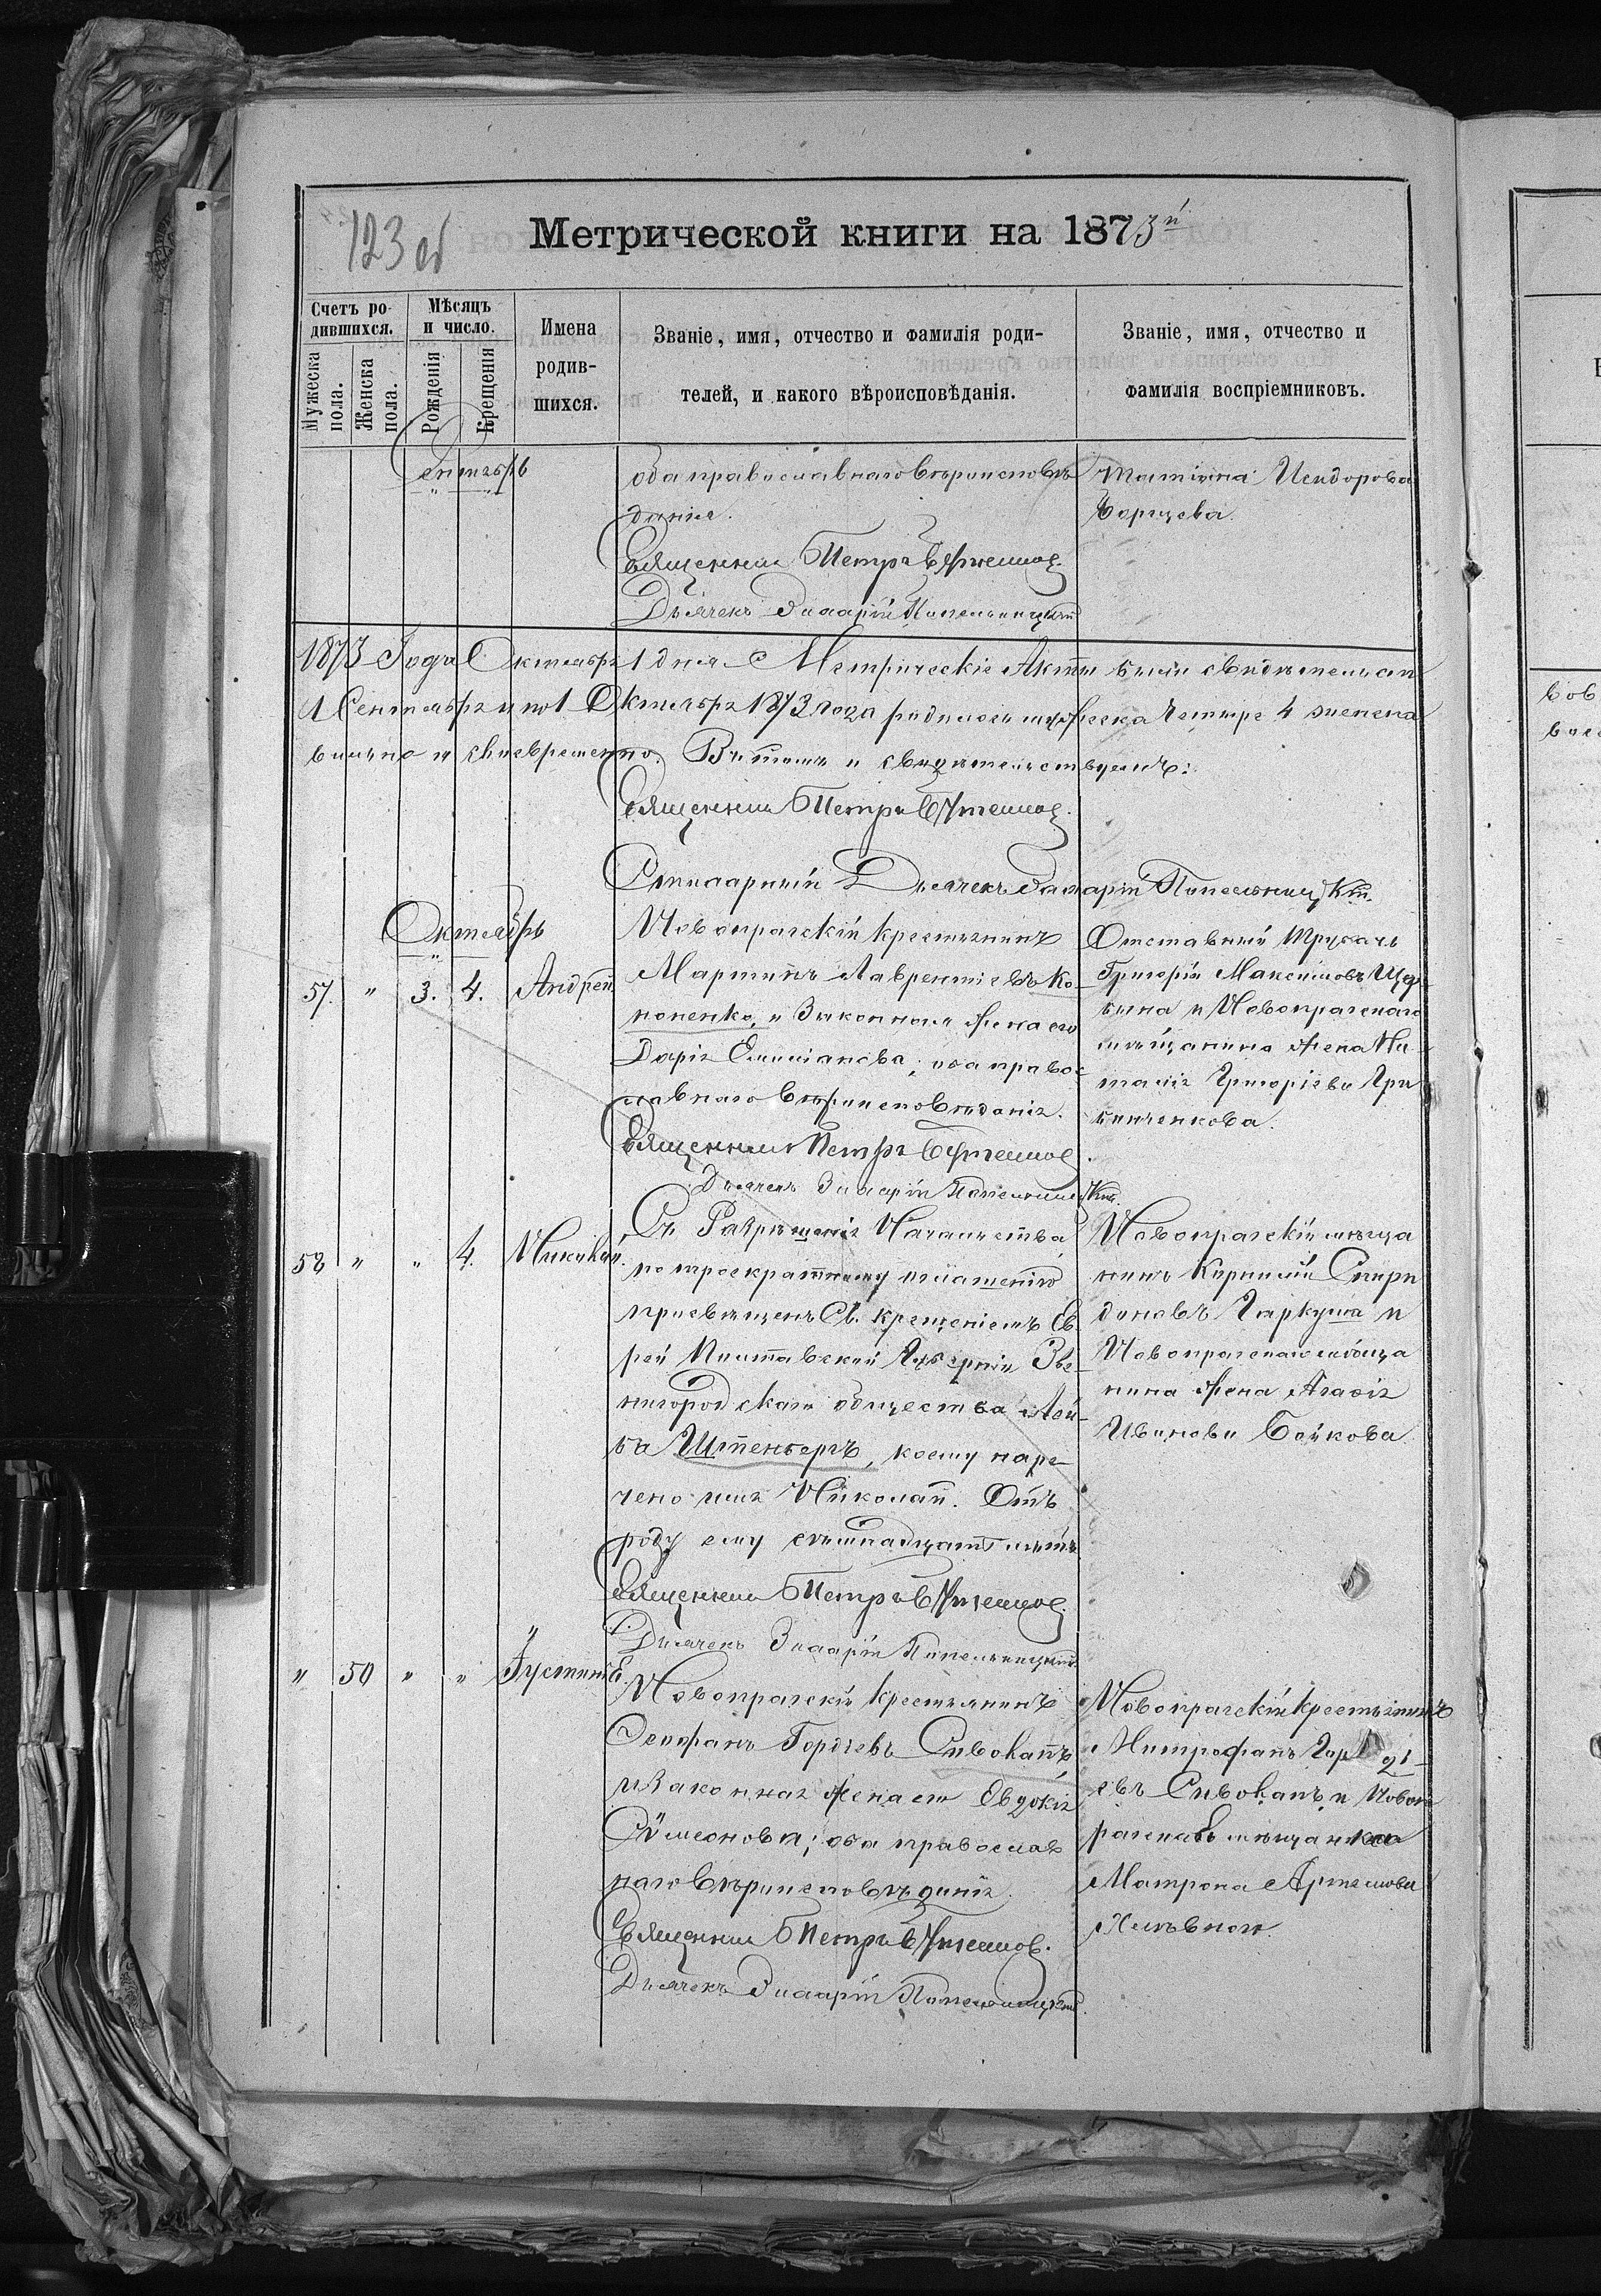 123 об
Метрической книги на 1873й
Счетъ ро-
дившихся.
Мѣсяцъ
и число.
Мужеска
пола.
Женска
пола.
Рожденія
Крещенія
Имена
родив-
шихся.
Званіе, имя, отчество и фамилія роди-
телей, и какого вѣроисповѣданія.
Званіе, имя, отчество и
фамилія воспріемниковъ.
Сентябрь
оба православнаго вѣроисповѣ
данія.
Священникъ Петръ
Дьячекъ Иларій
Татіяна Исидорова
Борщева.
1873 Года Октября 1 дня Метрическіе Акты были свидѣтельств
1 Сентября и по 1 Октября 1873 года родилось мужеска четыре 4 женска
вѣрно и своевременно. В томъ и свидѣтельствуемъ:
Священникъ Петръ
Дьячекъ
Октябрь
57. " 3. 4. Андрей
Новопражскій крестьянинъ
Мартинъ Лаврентіевъ Ко-
ноненко, и Законная жена его
Дарія Емиліанова; оба право-
славнаго вѣроисповѣданія.
Священникъ Петръ
Дьячекъ Иларій
Отставный Трубачъ
Григорій Максимовъ
и Новопражскаго
мѣщанина жена На-
талія Григоріева Гри
58 " " 4. Николай.
Съ Разрѣшенія Начальства,
по троекратному оглашенію
просвѣщенъ Св. крещеніемъ Ев-
рей Полтавской Губерніи Зве-
нигородскаго общества Лей-
ба Штенбергъ, коему наре-
чено имя Николай. Отъ
роду ему семнадцать лѣтъ
Священникъ Петръ
Дьячекъ Иларій
Новопражскій мѣща
нинъ Кириллъ Спири
доновъ Гаркуша и
Новопражскаго мѣща
нина жена Агафія
Иванова Бойкова
" 50 " " Іустинія.
Новопражскій крестьянинъ
Стефанъ Гордѣевъ Сивоканъ
и Законная жена его Евдокія
Сѵмеонова; оба православ
наго вѣроисповѣданія.
Священникъ Петръ
Дьячекъ Иларій
Новопражскій крестьянинъ
Митрофанъ Гордѣ-
евъ Сивоканъ и Новоп
ражская мѣщанка
Матрона Артемова